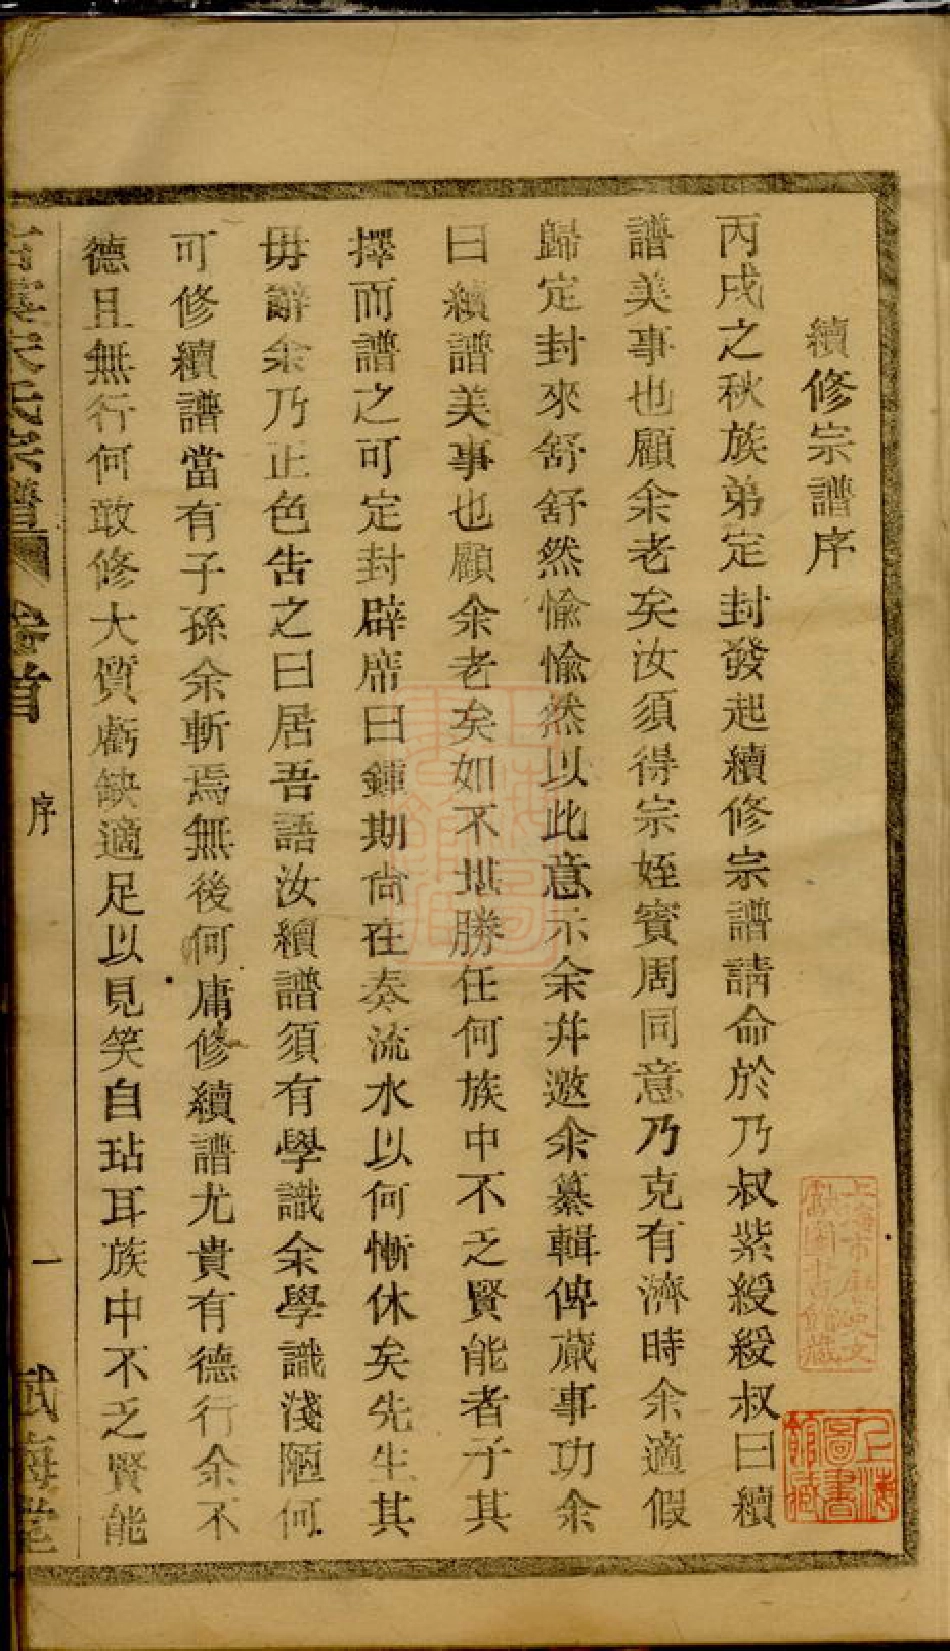 續修宗譜序
丙戌之秋族弟定封發起續修宗譜請命於乃叔紫綬綬叔曰續
譜美事也顧余老矣汝須得宗姪賓周同意乃克有濟時余適假
歸定封來舒舒然愉愉然以此意示余幷邀余纂輯俾蕆事功余
曰續譜美事也顧余老矣如不堪勝任何族中不乏賢能者子其
擇而譜之可定封辟席曰鍾期尙在奏流水以何慚休矣先生其
毋辭余乃正色告之曰居吾語汝續譜須有學識余學識淺陋何
可修續譜當有子孫余斬焉無後何庸修續譜尤貴有德行余不
德且無行何敢修大質虧缺適足以見笑自玷耳族中不乏賢能
宋氏宗譜 卷首 序 一
上海市歷史文獻圖書館藏
上海圖書館藏